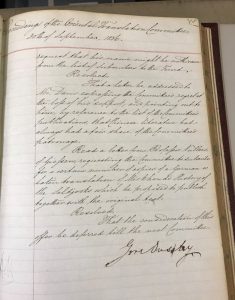 Proceedings of the Oriental Translation Committee
30th of September, 1836.
request that his name might be withdrawn
from the list of subscribers to the Fund.
Resolved:
That a letter be addressed to
Mr. Davis expressing the Committee's regret at
the loss of his support, and pointing out to
him, by reference to the list of the Committee's
publications that Chinese Literature had
always had a fair share of the Committee's
patronage.
Read a letter from Professor
of requesting the Committee to subscribe
for a certain number of copies of a German or
Latin translation of the History of
the which he proposed to publish
together with the original text.
Resolved:
That the consideration of this
offer be deferred till the next Committee.
Gore Ouseley